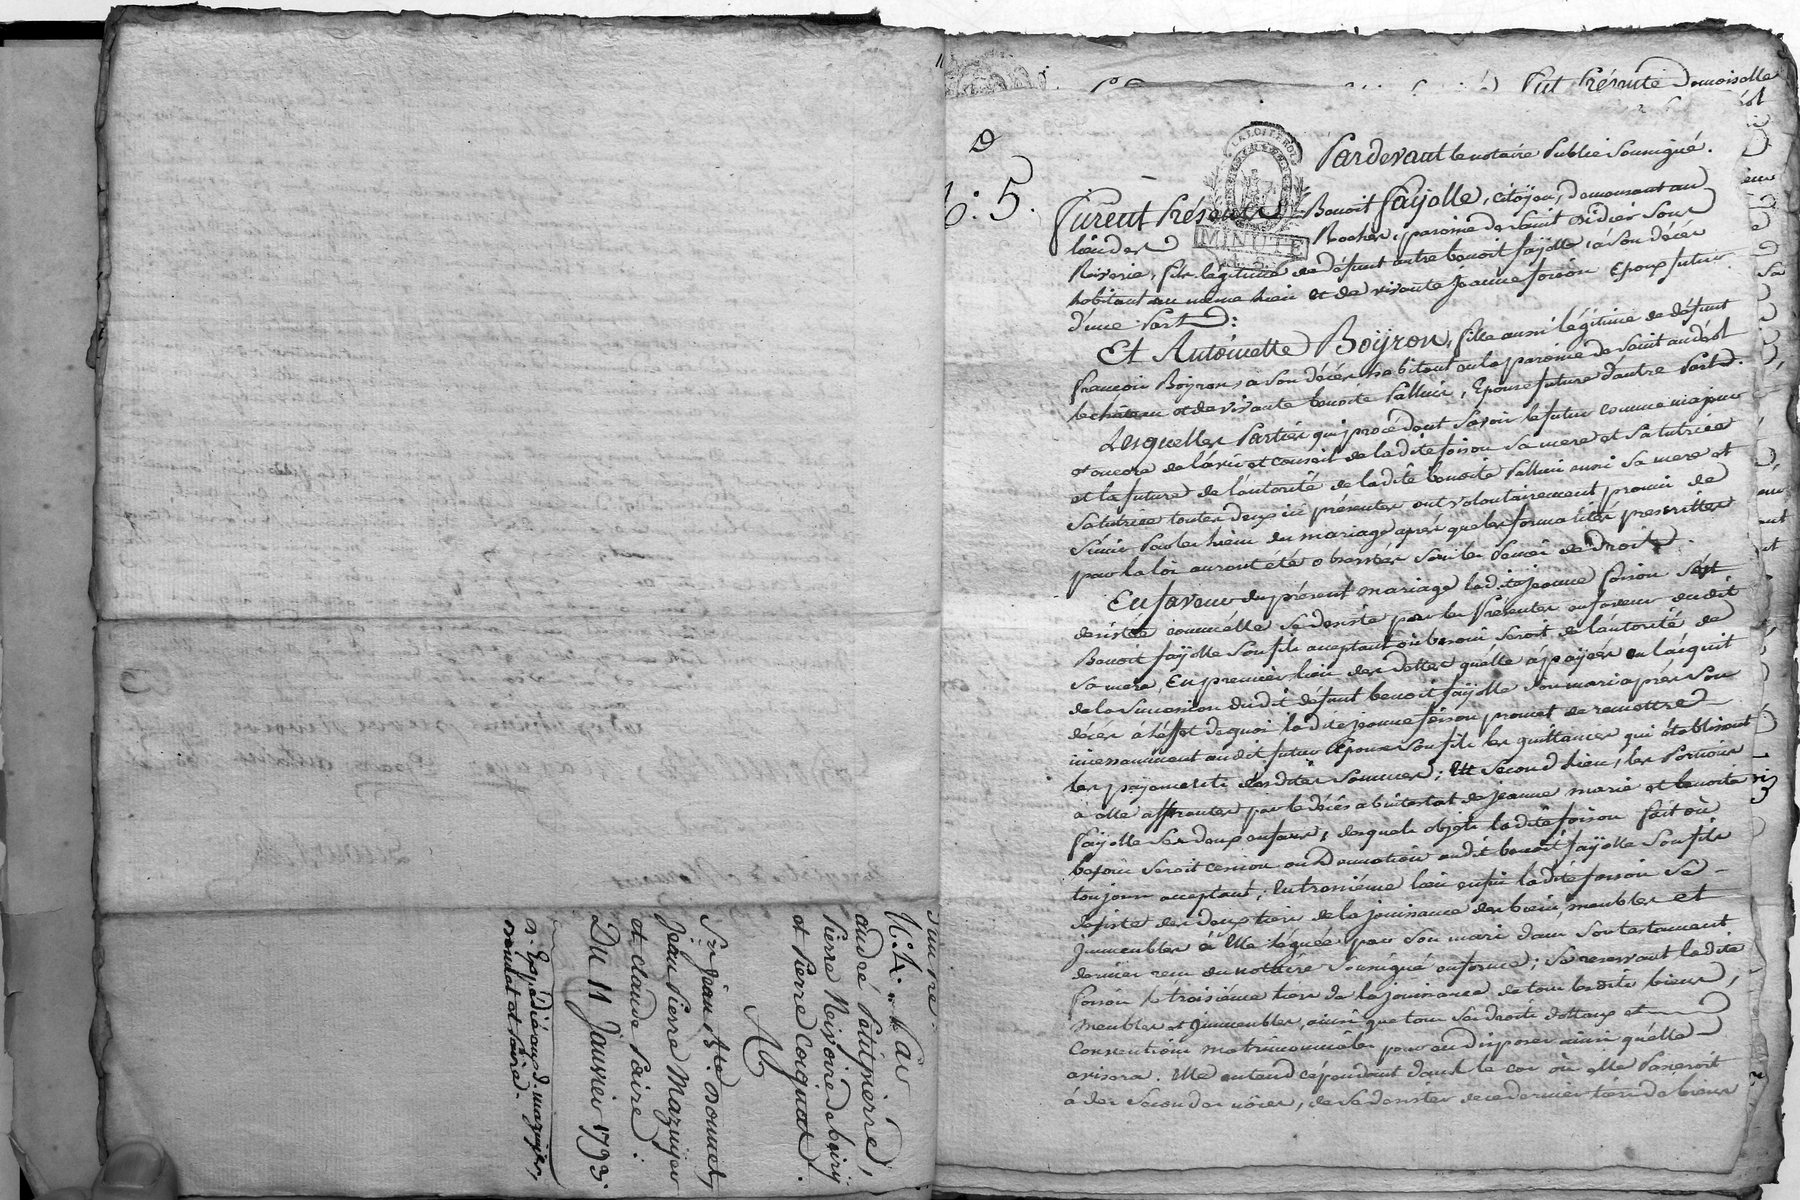 Janvier.
N.º 4. Par
andré Petitpierre,
Pierre Noivoire de boiry
et Pierre Coiquat.
A
Srs jean Bte. donnet,
Jean Pierre Mazuyer
et claude Paire:
Du 11 Janvier 1793.
n. Expédié aux d. mazuyer,
donnet et Paire.
Fut Présente Demoiselle
Nº: 5.
LA LOI LE ROI
MINUTE
Pardevant le notaire Public soussigné.
Furent Présents Benoit Fayolle, citoyen, demeurant au
lieu des Roches, paroisse de Saint Didier sous
Riverie, fils légitime de défunt autre benoit fayolle, à son décès
habitant au même lieu et de vivante Jeanne foison Epoux futur
d'une Part:
Et Antoinette Boyron, fille aussi légitime de défunt
françois Boyron, à son décès habitant en la paroisse de Saint andéol
le château et de vivante benoite Palluis, Epouse future d'autre Part.
Lesquelles Parties qui procèdent savoir le futur comme majeur
et encore de l'avis et conseil de ladite foison sa mere et sa tutrice
et la future de l'autorité de ladite benoite Palluis aussi sa mere et
sa tutrice toutes deux ici présentes ont volontairement promis de
s'unir Par les liens du mariage après que les formalités prescrittes
par la loi auront été observées sous les Peines de Droit.
En faveur du présent mariage ladite jeanne foison s'est
desistée comme elle se desiste par les Présentes en faveur dudit
Benoit fayolle son fils acceptant où besoin seroit de l'autorité de
sa mere, En premier lieu des dettes qu'elle a payées en l'acquit
de la succession dudit défunt benoit fayolle son mari après son
décès à l'effet de quoi ladite jeanne foison promet de remettre
incessamment audit futur Epoux son fils les quittances qui établissent
les payements desdites sommes; En second lieu, les Portions
à elle afférentes par le décès abintestat de jeanne marie et benoite
fayolle ses deux enfans, desquels objets ladite foison fait où
besoin seroit cession ou Donnation audit benoit fayolle son fils
toujours acceptant; En troisiéme lieu enfin ladite foison se
desiste des deux tiers de la jouissance des biens, meubles et
Immeubles à Elle léguée par son mari dans son testament
dernier reçu du notaire soussigné en forme; se reservant ladite
foison le troisième tiers de la jouissance de tous lesdits biens,
meubles et Immeubles, ainsi que tous ses droits dottaux et
Conventions matrimoniales pour en disposer ainsi qu'elle
avisera. Elle entend cependant dans le cas où elle Passeroit
à des secondes nôces, de se desister de ce dernier tiers de biens